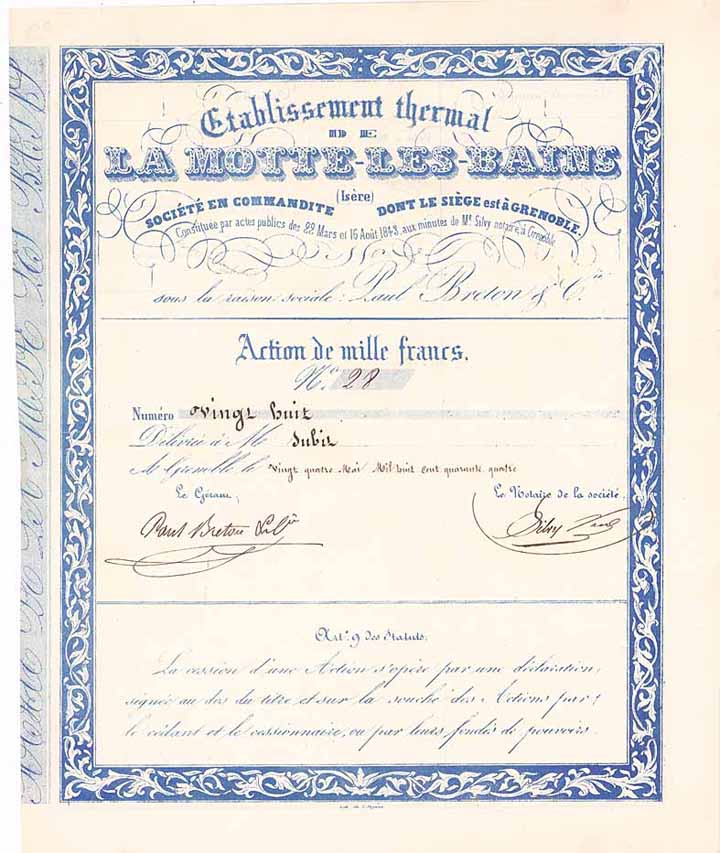 Etablissement thermal
DE
LA MOTTE-LES-BAINS
(Isère)
SOCIÉTÉ EN COMMANDITE DONT LE SIÈGE est à GRENOBLE.
Constituée par actes publics des 22 Mars et 16 Août 1843, aux minutes de Me Silvy notaire, à Grenoble
sous la raison sociale: Paul Breton & Cie
Action de mille francs.
No. 28
Numéro vingt huit
Délivrée à Mr Subit
A Grenoble le vingt quatre Mai Mil huit cent quarante quatre
Le Gérant, Le Notaire de la société,
Paul Breton & Cie Silvy
Art. 9 des Statuts.
La cession d'une Action s'opère par une déclaration,
signée au dos du titre et sur la souche des Actions par
le cédant et le cessionnaire, ou par leurs fondés de pouvoirs.